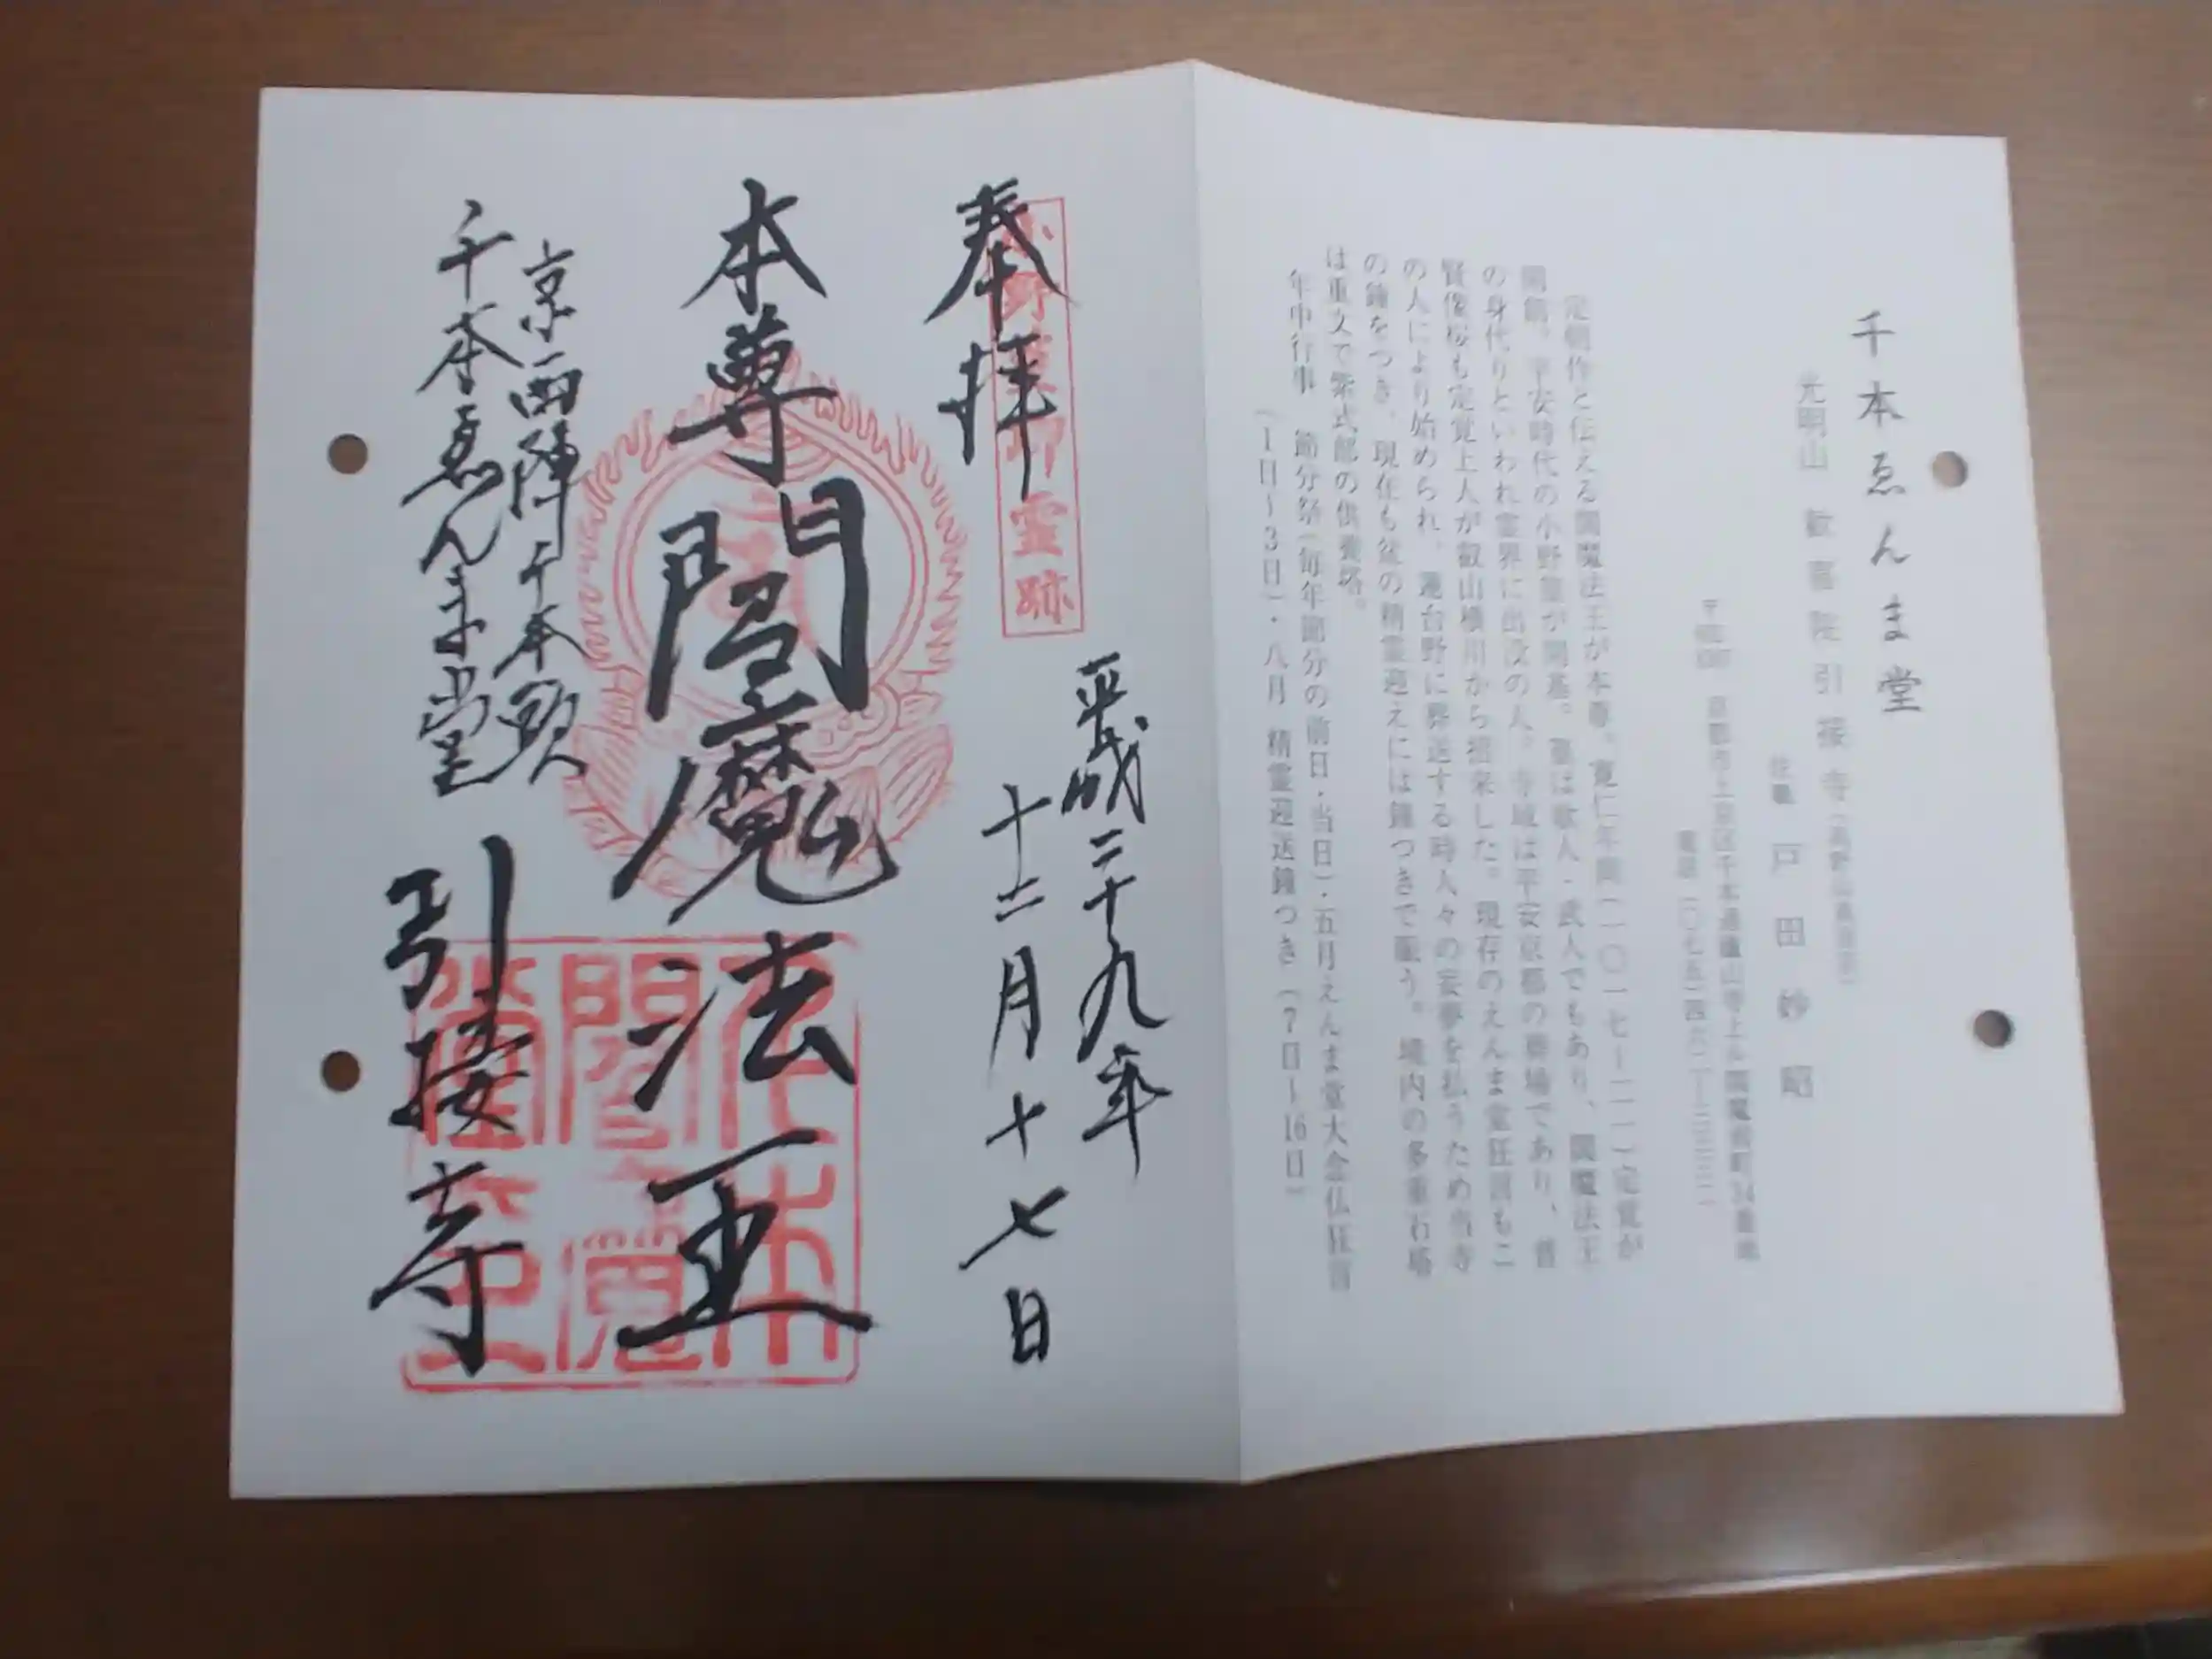 千本ゑんま堂
光明山 歓喜院 引接寺（高野山真言宗）
住職 戸田妙昭
京都市上京区千本通蘆山寺上ル閻魔前町34番地
電話（〇七五）四六二―三三三二
定朝作と伝える閻魔法王が本尊。寛仁年間（一〇一七―二一）定覚が
開創。平安時代の小野篁が開基。篁は歌人・武人でもあり、閻魔法王
の身代りといわれ霊界に出没の人。寺域は平安京都の葬場であり、普
賢像桜も定覚上人が叡山横川から招来した。現存のえんま堂狂言もこ
の人により始められ、蓮台野に葬送する時人々の妄夢を払うため当寺
の鐘をつき、現在も盆の精霊迎えには鐘つきで賑う。境内の多重石塔
は重文で紫式部の供養塔。
年中行事 節分祭（毎年節分の前日・当日）・五月えんま堂大念仏狂言
（1日～3日）・八月 精霊迎送鐘つき（7日～16日）
奉拝
小野篁卿霊跡
平成二十九年
十二月十七日
本尊 閻魔法王
京西陣千本鞍
千本ゑんま堂
引接寺